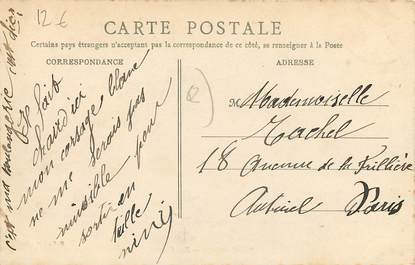 12 €
CARTE POSTALE
Certains pays étrangers n'acceptant pas la correspondance de ce côté, se renseigner à la Poste
CORRESPONDANCE
Il fait
chaud ici
mon corsage blanc
ne me serais pas
nuisible pour
sortir en
taille
c'est ma boulangerie
ADRESSE
M Mademoiselle
Rachel
18 Avenue de la Frillière
Auteuil Paris